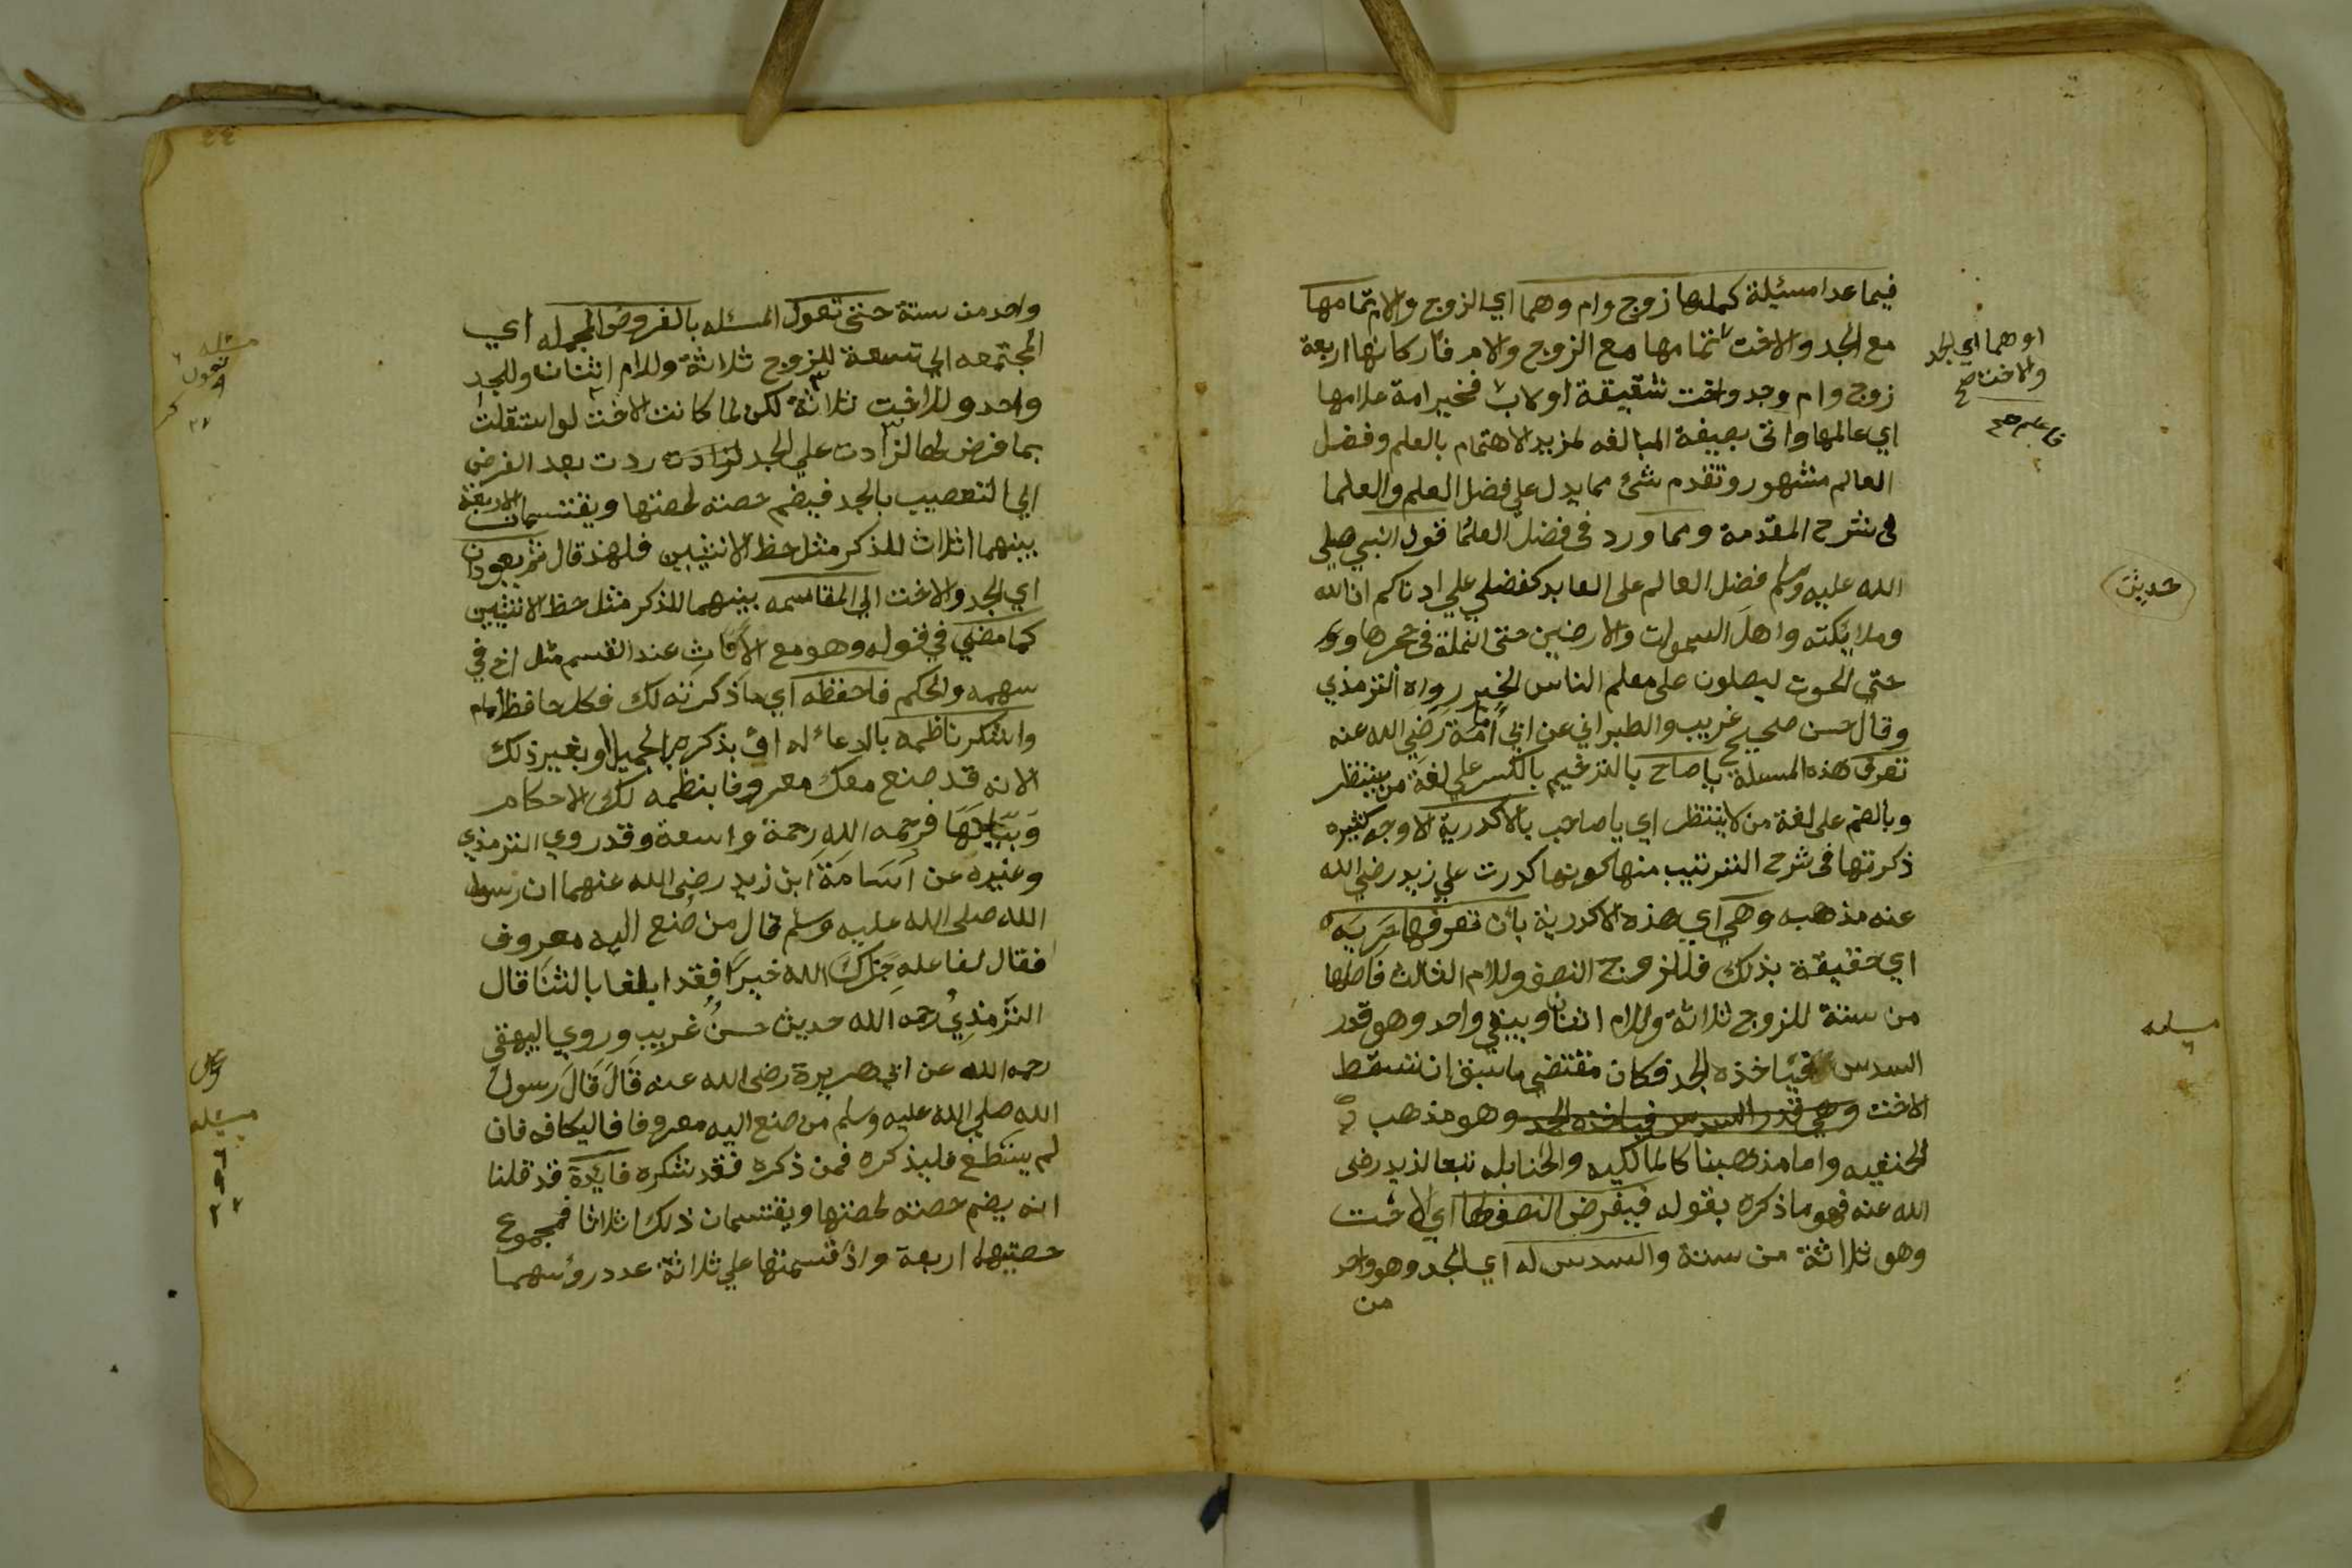 فيما عدا مسئلة كملها زوج وام وهما اي الزوج والام تمامها
مع الجد والاخت تمامها مع الزوج والام فاركانها اربعة
زوج وام وجد واخت شقيقة او لاب فخير امة علامها
اي عالمها واتى بصيغة المبالغه لمزيد الاهتمام بالعلم وفضل
العالم مشهور وتقدم شئ مما يدل على فضل العلم والعلما
فى شرح المقدمة ومما ورد فى فضل العلما قول النبي صلى
الله عليه وسلم فضل العالم على العابد كفضلي علي ادناكم ان الله
وملايكته واهل السموات والارضين حتى النملة فى جحرها و
حتي الحوت ليصلون على معلم الناس الخير رواه الترمذي
وقال حسن صحيح غريب والطبراني عن ابي امامة رضي الله عنه
تعرف هذه المسئلة يا صاح بالترخيم بالكسر علي لغة من ينتظر
وبالضم على لغة من لا ينتظر اي يا صاحب بالاكدرية لاوجه كثيره
ذكرتها فى شرح الترتيب منها كونها كدرت علي زيد رضي الله
عنه مذهبه وهي اي هذه الاكدرية بان تعرفها حريه
اي حقيقة بذلك فللزوج النصف وللام الثالث فاصلها
من ستة للزوج ثلاثة وللام اثنان ويبقي واحد وهو قدر
السدس فياخذه الجد فكان مقتضي ما سبق ان تسقط
الاخت وهي قدر السدس فياخذه الجد وهو مذهب
الحنفيه واما مذهبنا كالمالكيه والحنابله تبعا لزيد رضى
الله عنه فهو ما ذكره بقوله فيفرض النصف لها اي الاخت
وهو ثلاثة من ستة والسدس له اي الجد وهو واحد
من
او هما اي الجد
والاخت صح
حديث
مسئله
٦
٤٤
واحد من ستة حتى تعول المسئله بالفروض المجمله اي
المجتمعه الي تسعة للزوج ثلاثة وللام اثنان وللجد
واحد وللاخت ثلاثة لكن لما كانت الاخت لو استقلت
بما فرض لها لزادت علي الجد لزادت ردت بعد الفرض
الي التعصيب بالجد فيضم حصته لحصتها ويقتسمان الاربعة
بينهما اثلاث للذكر مثل حظ الانثيين فلهذ قال ثم يعودان
اي الجد والاخت الي المقاسمه بينهما للذكر مثل حظ الانثيين
كما مضي في قوله وهو مع الاناث عند القسم مثل اخ في
سهمه والحكم فاحفظه اي ما ذكرته لك فكل حافظ امام
واشكر ناظمه بالدعاء له اؤ بذكره بالجميل او بغير ذلك
لانه قد صنع معك معروفا بنظمه لك الاحكام
وبيانها فرحمه الله رحمة واسعة وقد روي الترمذي
وغيره عن اسامة ابن زيد رضى الله عنهما ان رسول
الله صلى الله عليه وسلم قال من صنع اليه معروف
فقال لفاعله جزاك الله خيرا فقد ابلغا بالثنا قال
الترمذي رحمه الله حديث حسن غريب وروي البيهقى
رحمه الله عن ابي هريرة رضى الله عنه قال قال رسول
الله صلي الله عليه وسلم من صنع اليه معروفا فاليكافه فان
لم يستطع فليذكره فمن ذكره فقد شكره فايدة قد قلنا
انه يضم حصته لحصتها ويقتسمان ذلك اثلاثا فمجموع
حصتيهما اربعة واذ قسمتها علي ثلاثة عدد رؤسهما
مسئله ٦
تعول
٩
٢٧
مسئله